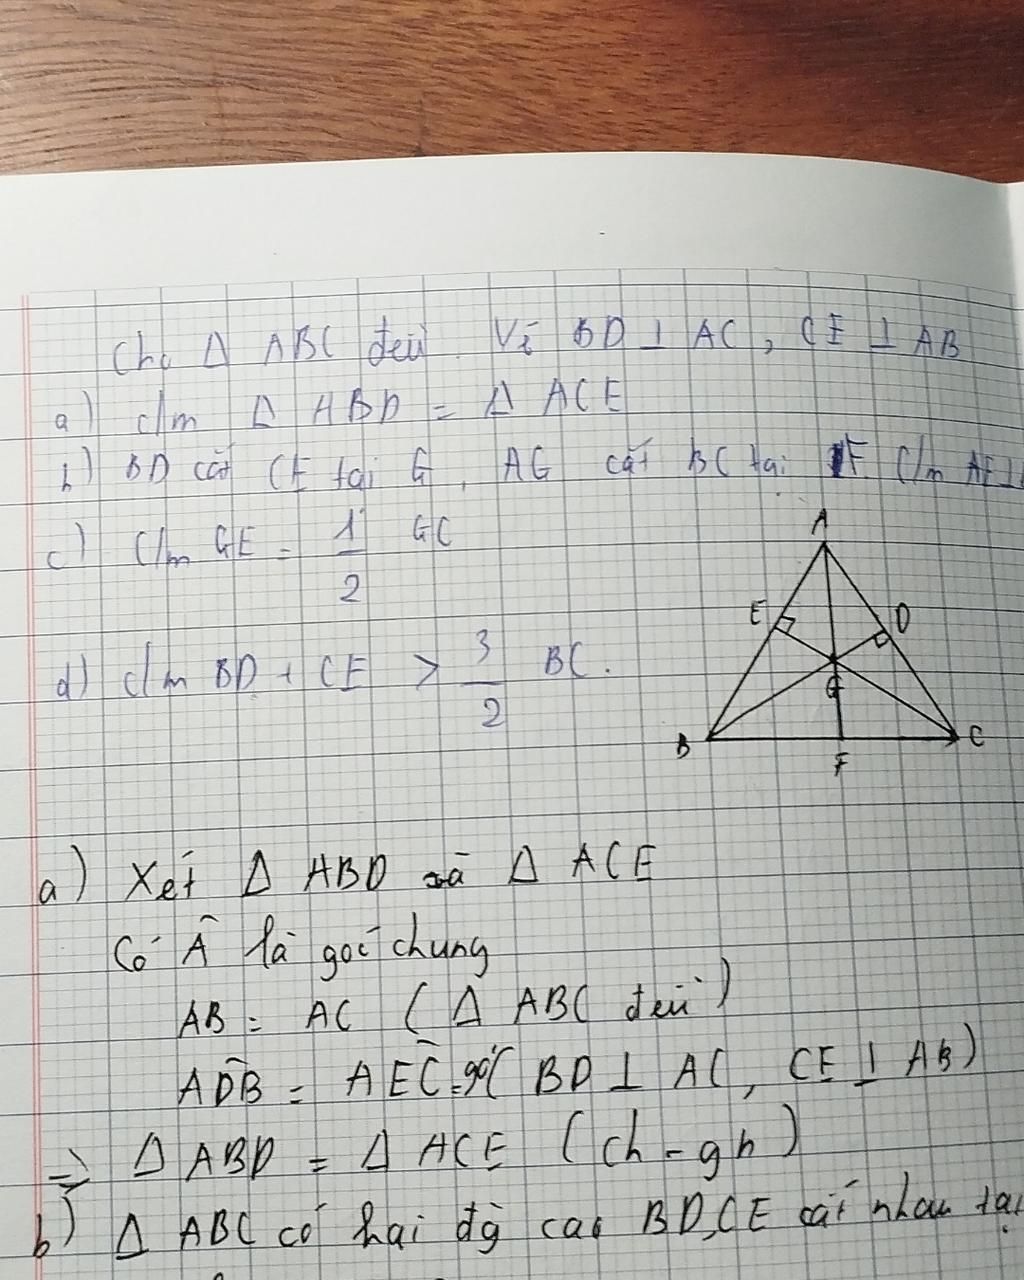 Cho Δ ABC đều. Vẽ BD ⊥ AC, CE ⊥ AB
a) c/m Δ ABD = Δ ACE
b) BD cắt CE tại G, AG cắt BC tại F. C/m AF ⊥
c) C/m GE = 1/2 GC
d) c/m BD + CE > 3/2 BC.
A
E
D
G
B
C
F
a) Xét Δ ABD và Δ ACE
Có Â là góc chung
AB = AC (Δ ABC đều)
ADB̂ = AEĈ = 90° (BD ⊥ AC, CE ⊥ AB)
=> Δ ABD = Δ ACE (ch - gn)
b) Δ ABC có hai đg cao BD, CE cắt nhau tại